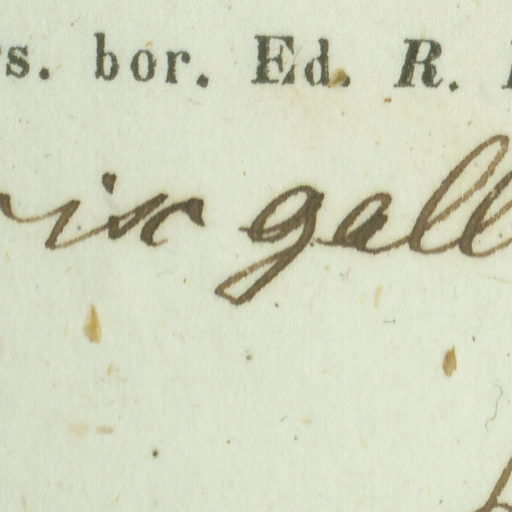 s. bor. Ed. R.
rix gall